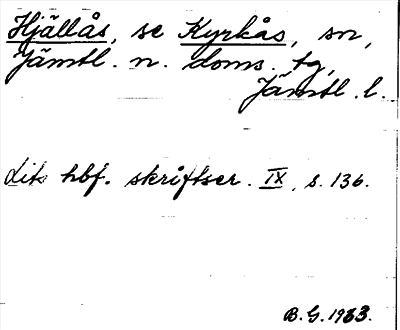 Hjällås, se Kyrkås, sn,
Jämtl. n. doms. tg,
Jämtl. l.
Lits hbf. skriftser. IX, s. 136.
B.G. 1963.